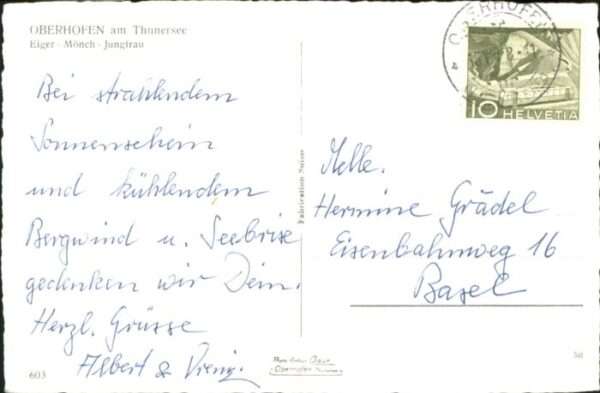 OBERHOFEN am Thunersee
Eiger - Mönch - Jungfrau
Bei strahlendem
Sonnenschein
und kühlendem
Bergwind u. Seebrise
gedenken wir Dein.
Herzl. Grüsse
Albert &
603
Fabrication Suisse
OBERHOFEN
10 HELVETIA
Melle.
Hermine Grädel
Eisenbahnweg 16
Basel